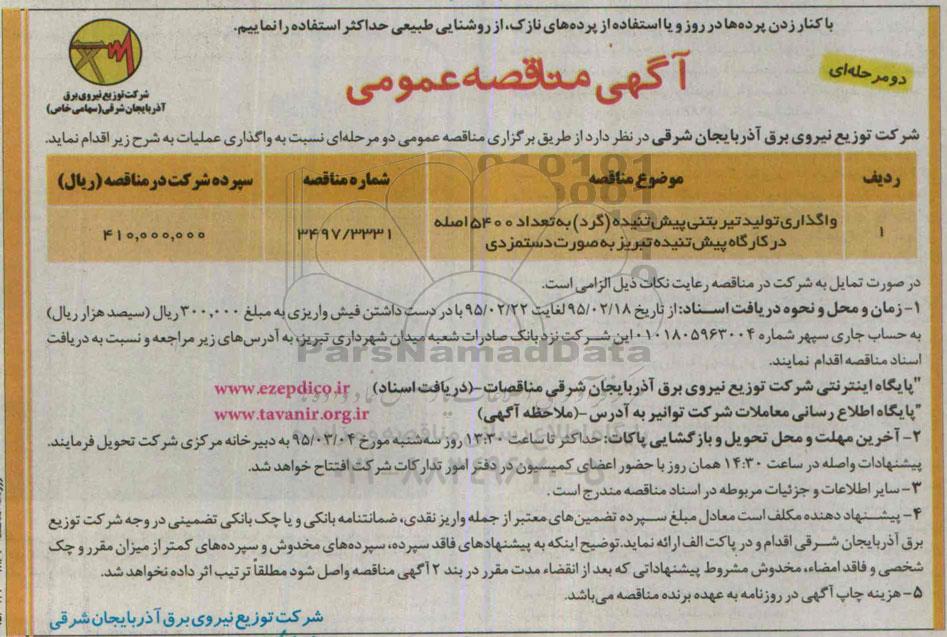 با کنار زدن پرده‌ها در روز و یا استفاده از پرده‌های نازک، از روشنایی طبیعی حداکثر استفاده را نماییم.
دو مرحله‌ای
آگهی مناقصه عمومی
شرکت توزیع نیروی برق
آذربایجان شرقی (سهامی خاص)
شرکت توزیع نیروی برق آذربایجان شرقی در نظر دارد از طریق برگزاری مناقصه عمومی دو مرحله‌ای نسبت به واگذاری عملیات به شرح زیر اقدام نماید.
ردیف موضوع مناقصه شماره مناقصه سپرده شرکت در مناقصه (ریال)
۱ واگذاری تولید تیر بتنی پیش‌تنیده (گرد) به تعداد ۵۴۰۰ اصله در کارگاه پیش‌تنیده تبریز به صورت دستمزدی ۳۴۹۷/۳۳۳۱ ۴۱۰,۰۰۰,۰۰۰
در صورت تمایل به شرکت در مناقصه رعایت نکات ذیل الزامی است.
۱- زمان و محل و نحوه دریافت اسناد: از تاریخ ۹۵/۰۲/۱۸ لغایت ۹۵/۰۲/۲۲ با در دست داشتن فیش واریزی به مبلغ ۳۰۰,۰۰۰ ریال (سیصد هزار ریال)
به حساب جاری سپهر شماره ۰۱۰۱۸۰۵۹۶۳۰۰۴ این شرکت نزد بانک صادرات شعبه میدان شهرداری تبریز، به آدرس‌های زیر مراجعه و نسبت به دریافت
اسناد مناقصه اقدام نمایند.
"پایگاه اینترنتی شرکت توزیع نیروی برق آذربایجان شرقی مناقصات- (دریافت اسناد) www.ezepdico.ir
"پایگاه اطلاع رسانی معاملات شرکت توانیر به آدرس- (ملاحظه آگهی) www.tavanir.org.ir
۲- آخرین مهلت و محل تحویل و بازگشایی پاکات: حداکثر تا ساعت ۱۳:۳۰ روز سه‌شنبه مورخ ۹۵/۰۳/۰۴ به دبیرخانه مرکزی شرکت تحویل فرمایند.
پیشنهادات واصله در ساعت ۱۴:۳۰ همان روز با حضور اعضای کمیسیون در دفتر امور تدارکات شرکت افتتاح خواهد شد.
۳- سایر اطلاعات و جزئیات مربوطه در اسناد مناقصه مندرج است.
۴- پیشنهاد دهنده مکلف است معادل مبلغ سپرده تضمین‌های معتبر از جمله واریز نقدی، ضمانتنامه بانکی و یا چک بانکی تضمینی در وجه شرکت توزیع
برق آذربایجان شرقی اقدام و در پاکت الف ارائه نماید. توضیح اینکه به پیشنهادهای فاقد سپرده، سپرده‌های مخدوش و سپرده‌های کمتر از میزان مقرر و چک
شخصی و فاقد امضاء، مخدوش مشروط پیشنهاداتی که بعد از انقضاء مدت مقرر در بند ۲ آگهی مناقصه واصل شود مطلقاً ترتیب اثر داده نخواهد شد.
۵- هزینه چاپ آگهی در روزنامه به عهده برنده مناقصه می‌باشد.
شرکت توزیع نیروی برق آذربایجان شرقی
ParsNamadData